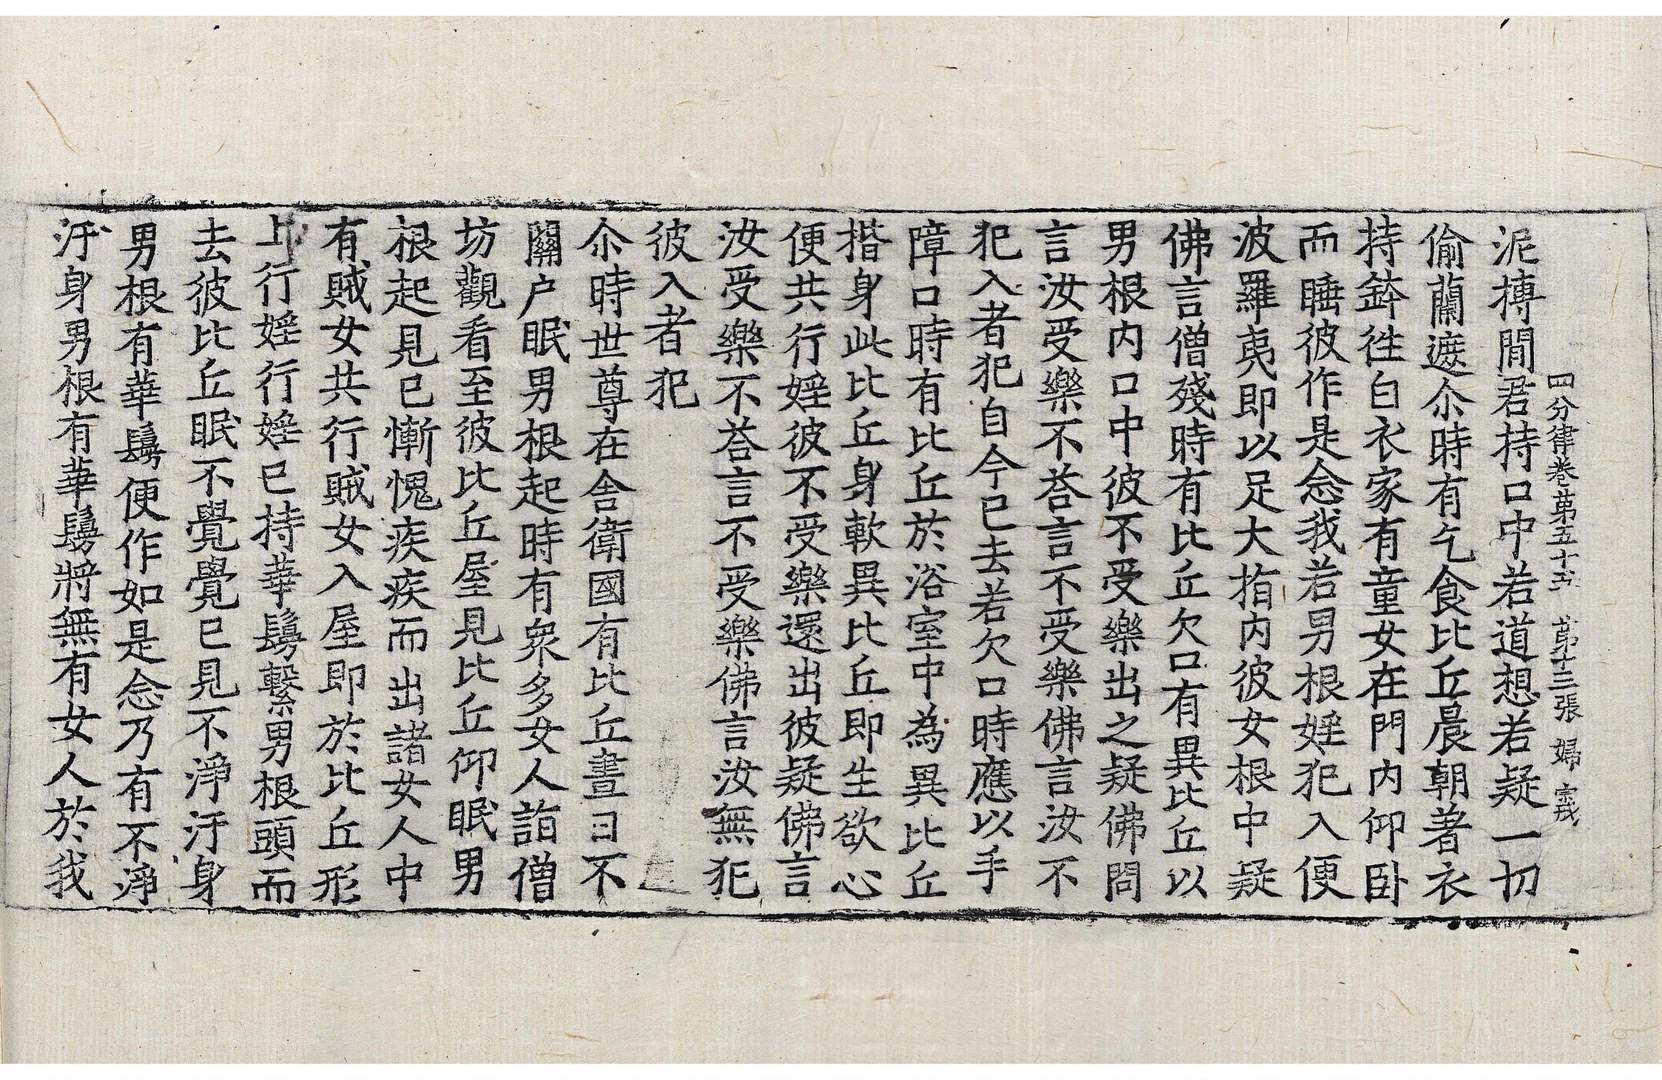 四分律卷第五十五 第十三張 婦 字号
泥摶間君持口中若道想若疑一切
偷蘭遮尒時有乞食比丘晨朝著衣
持鉢徃白衣家有童女在門内仰卧
而睡彼作是念我若男根婬犯入便
波羅夷即以足大指内彼女根中疑
佛言僧殘時有比丘欠口有異比丘以
男根内口中彼不受樂出之疑佛問
言汝受樂不荅言不受樂佛言汝不
犯入者犯自今已去若欠口時應以手
障口時有比丘於浴室中為異比丘
揩身此比丘身軟異比丘即生欲心
便共行婬彼不受樂還出彼疑佛言
汝受樂不荅言不受樂佛言汝無犯
彼入者犯
尒時世尊在舎衛國有比丘晝日不
關户眠男根起時有衆多女人詣僧
坊觀看至彼比丘屋見比丘仰眠男
根起見已慚愧疾疾而出諸女人中
有賊女共行賊女入屋即於比丘形
上行婬行婬已持華鬘繫男根頭而
去彼比丘眠不覺覺已見不淨汙身
男根有華鬘便作如是念乃有不淨
汙身男根有華鬘將無有女人於我